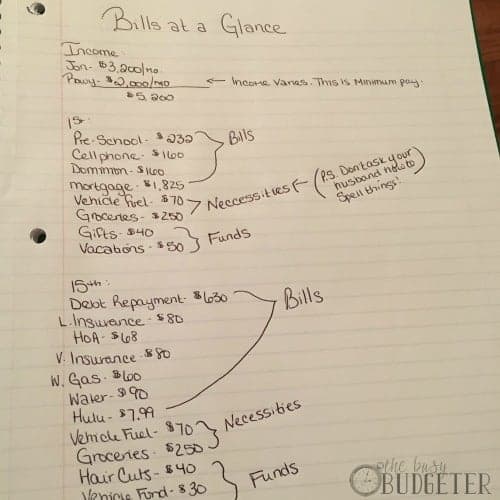 Bills at a Glance
Income:
Jon- $3,200/mo
$2,000/mo ← Income varies. This is Minimum pay.
$5,200
1st:
Pre-School- $232
Bills
Cellphone- $160
Dominion- $160
mortgage- $1,825
Vehicle Fuel- $70
Neccessities ← (P.S. Don't ask your husband how to spell things!)
Groceries- $250
Gifts- $40
Funds
Vacations- $50
15th:
Debt Repayment- $630
Bills
L. Insurance- $80
HOA- $68
V. Insurance- $80
W. Gas- $60
Water- $90
Hulu- $7.99
Vehicle Fuel- $70
Necessities
Groceries- $250
Hair Cuts- $40
Funds
Vehicle Fund- $30
the busy
BUDGETER